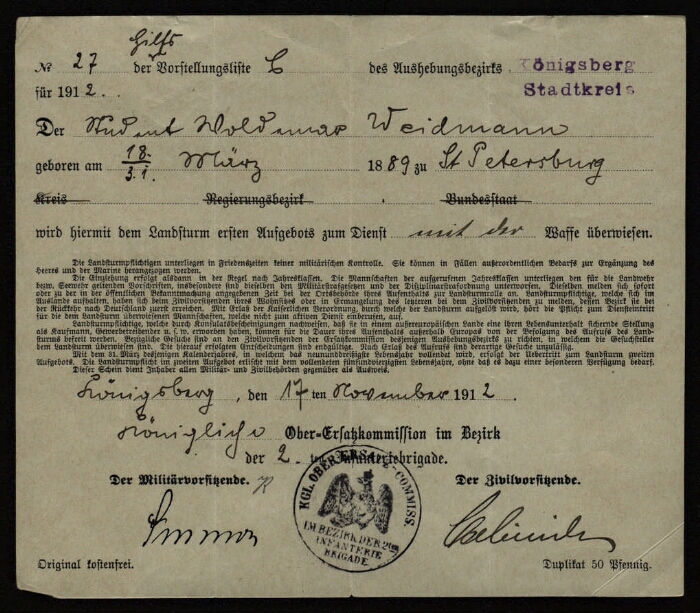 Hilfs
№ 27 der Vorstellungsliste C des Aushebungsbezirks Königsberg
für 1912. Stadtkreis
Der Student Woldemar Weidmann
geboren am 18./3.1. März 1889 zu St Petersburg
Kreis Regierungsbezirk Bundesstaat
wird hiermit dem Landsturm ersten Aufgebots zum Dienst mit der Waffe überwiesen.
Die Landsturmpflichtigen unterliegen in Friedenszeiten keiner militärischen Kontrolle. Sie können in Fällen außerordentlichen Bedarfs zur Ergänzung des
Heeres und der Marine herangezogen werden.
Die Einziehung erfolgt alsdann in der Regel nach Jahresklassen. Die Mannschaften der aufgerufenen Jahresklassen unterliegen den für die Landwehr
bzw. Seewehr geltenden Vorschriften, insbesondere sind dieselben den Militärstrafgesetzen und der Disziplinarstrafordnung unterworfen. Dieselben melden sich sofort
oder zu der in der öffentlichen Bekanntmachung angegebenen Zeit bei der Ortsbehörde ihres Aufenthalts zur Landsturmrolle an. Landsturmpflichtige, welche sich im
Auslande aufhalten, haben sich beim Zivilvorsitzenden ihres Wohnsitzes oder in Ermangelung des letzteren bei dem Zivilvorsitzenden zu melden, dessen Bezirk sie bei
der Rückkehr nach Deutschland zuerst erreichen. Mit Erlaß der Kaiserlichen Verordnung, durch welche der Landsturm aufgelöst wird, hört die Pflicht zum Diensteintritt
für die dem Landsturm überwiesenen Mannschaften, welche nicht zum aktiven Dienst einberufen, auf.
Landsturmpflichtige, welche durch Konsulatsbescheinigungen nachweisen, daß sie in einem außereuropäischen Lande eine ihren Lebensunterhalt sichernde Stellung
als Kaufmann, Gewerbetreibender u. s. w. erworben haben, können für die Dauer ihres Aufenthalts außerhalb Europas von der Befolgung des Aufrufs des Land-
sturms befreit werden. Bezügliche Gesuche sind an den Zivilvorsitzenden der Ersatzkommission desjenigen Aushebungsbezirks zu richten, in welchem die Gesuchsteller
dem Landsturm überwiesen sind. Die hierauf erfolgten Entscheidungen sind endgültige. Nach Erlaß des Aufrufs sind derartige Gesuche unzulässig.
Mit dem 31. März desjenigen Kalenderjahres, in welchem das neununddreißigste Lebensjahr vollendet wird, erfolgt der Uebertritt zum Landsturm zweiten
Aufgebots. Die Landsturmpflicht im zweiten Aufgebot erlischt mit dem vollendeten fünfundvierzigsten Lebensjahre, ohne daß es dazu einer besonderen Verfügung bedarf.
Dieser Schein dient Inhaber allen Militär- und Zivilbehörden gegenüber als Ausweis.
Königsberg, den 17ten November 1912.
Königliche Ober-Ersatzkommission im Bezirk
der 2. Infanteriebrigade.
Der Militärvorsitzende. Der Zivilvorsitzende.
KGL. OBER-ERSATZ-COMMISS.
IM BEZIRK DER 2ten
INFANTERIE
BRIGADE
Original kostenfrei. Duplikat 50 Pfennig.